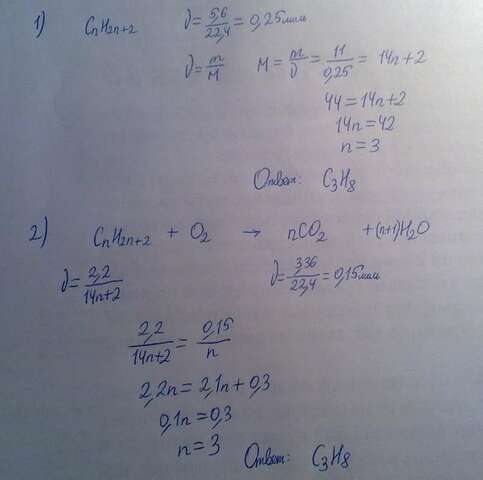 1) CnH2n+2 ν = 5,6/22,4 = 0,25 моль
ν = m/M M = m/ν = 11/0,25 = 14n+2
44 = 14n+2
14n = 42
n = 3
Ответ: C3H8
2) CnH2n+2 + O2 → nCO2 + (n+1)H2O
ν = 2,2/14n+2 ν = 3,36/22,4 = 0,15 моль
2,2/14n+2 = 0,15/n
2,2n = 2,1n + 0,3
0,1n = 0,3
n = 3
Ответ: C3H8